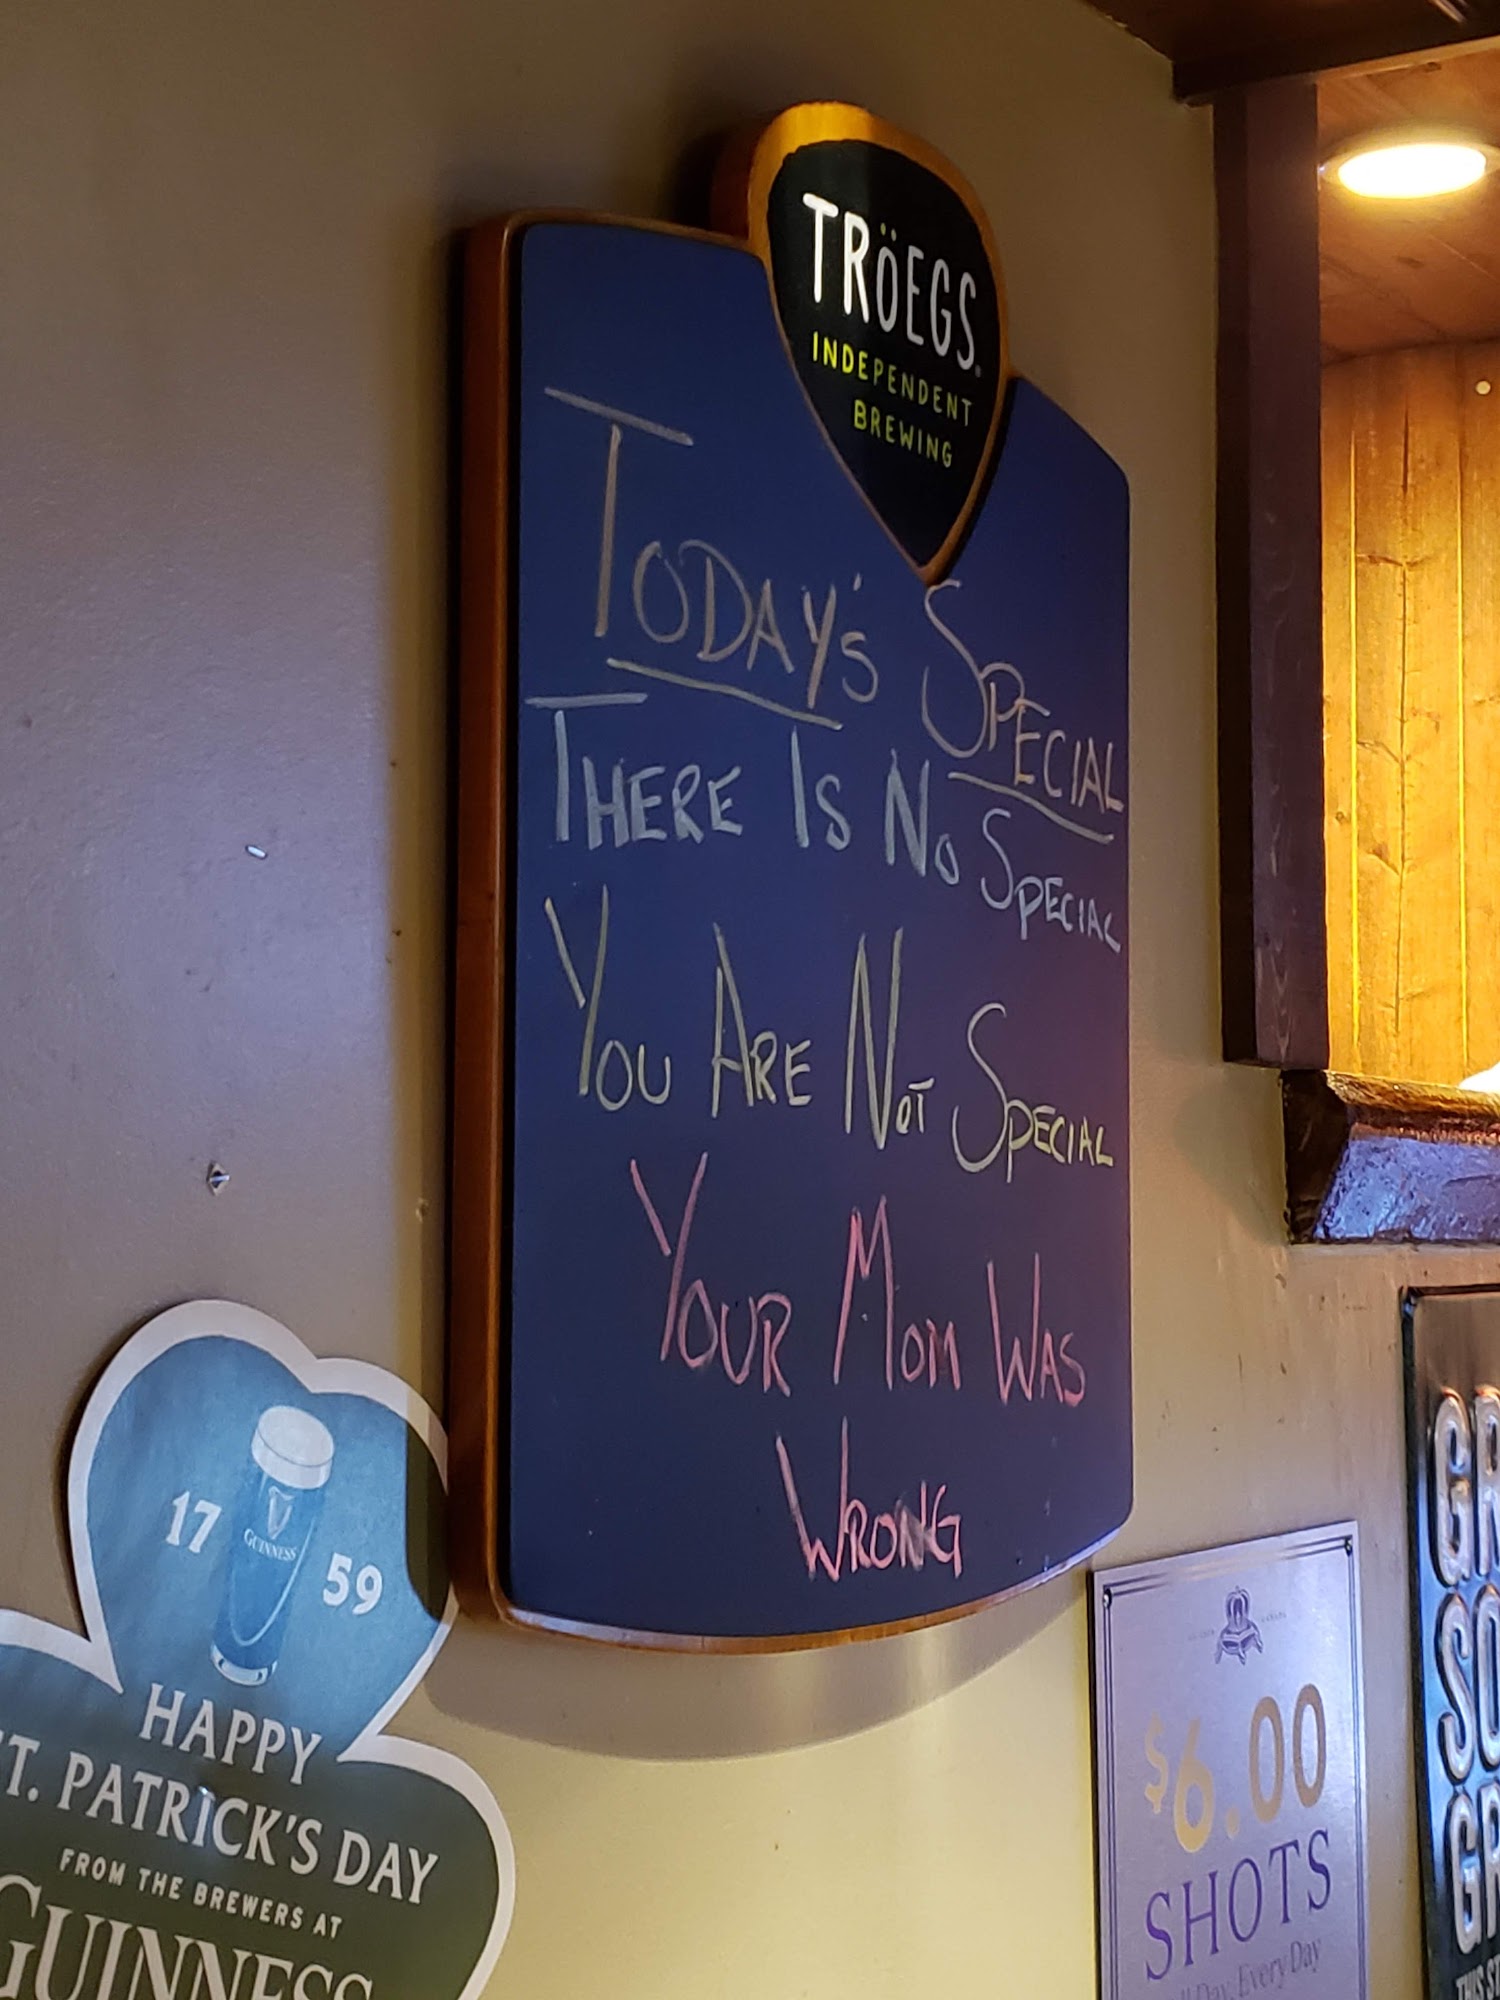 TRÖEGS
INDEPENDENT
BREWING
TODAY'S SPECIAL
THERE IS NO SPECIAL
YOU ARE NOT SPECIAL
YOUR MOM WAS
WRONG
17 59
GUINNESS
HAPPY
ST. PATRICK'S DAY
FROM THE BREWERS AT
GUINNESS
$6.00
SHOTS
Day, Every Day